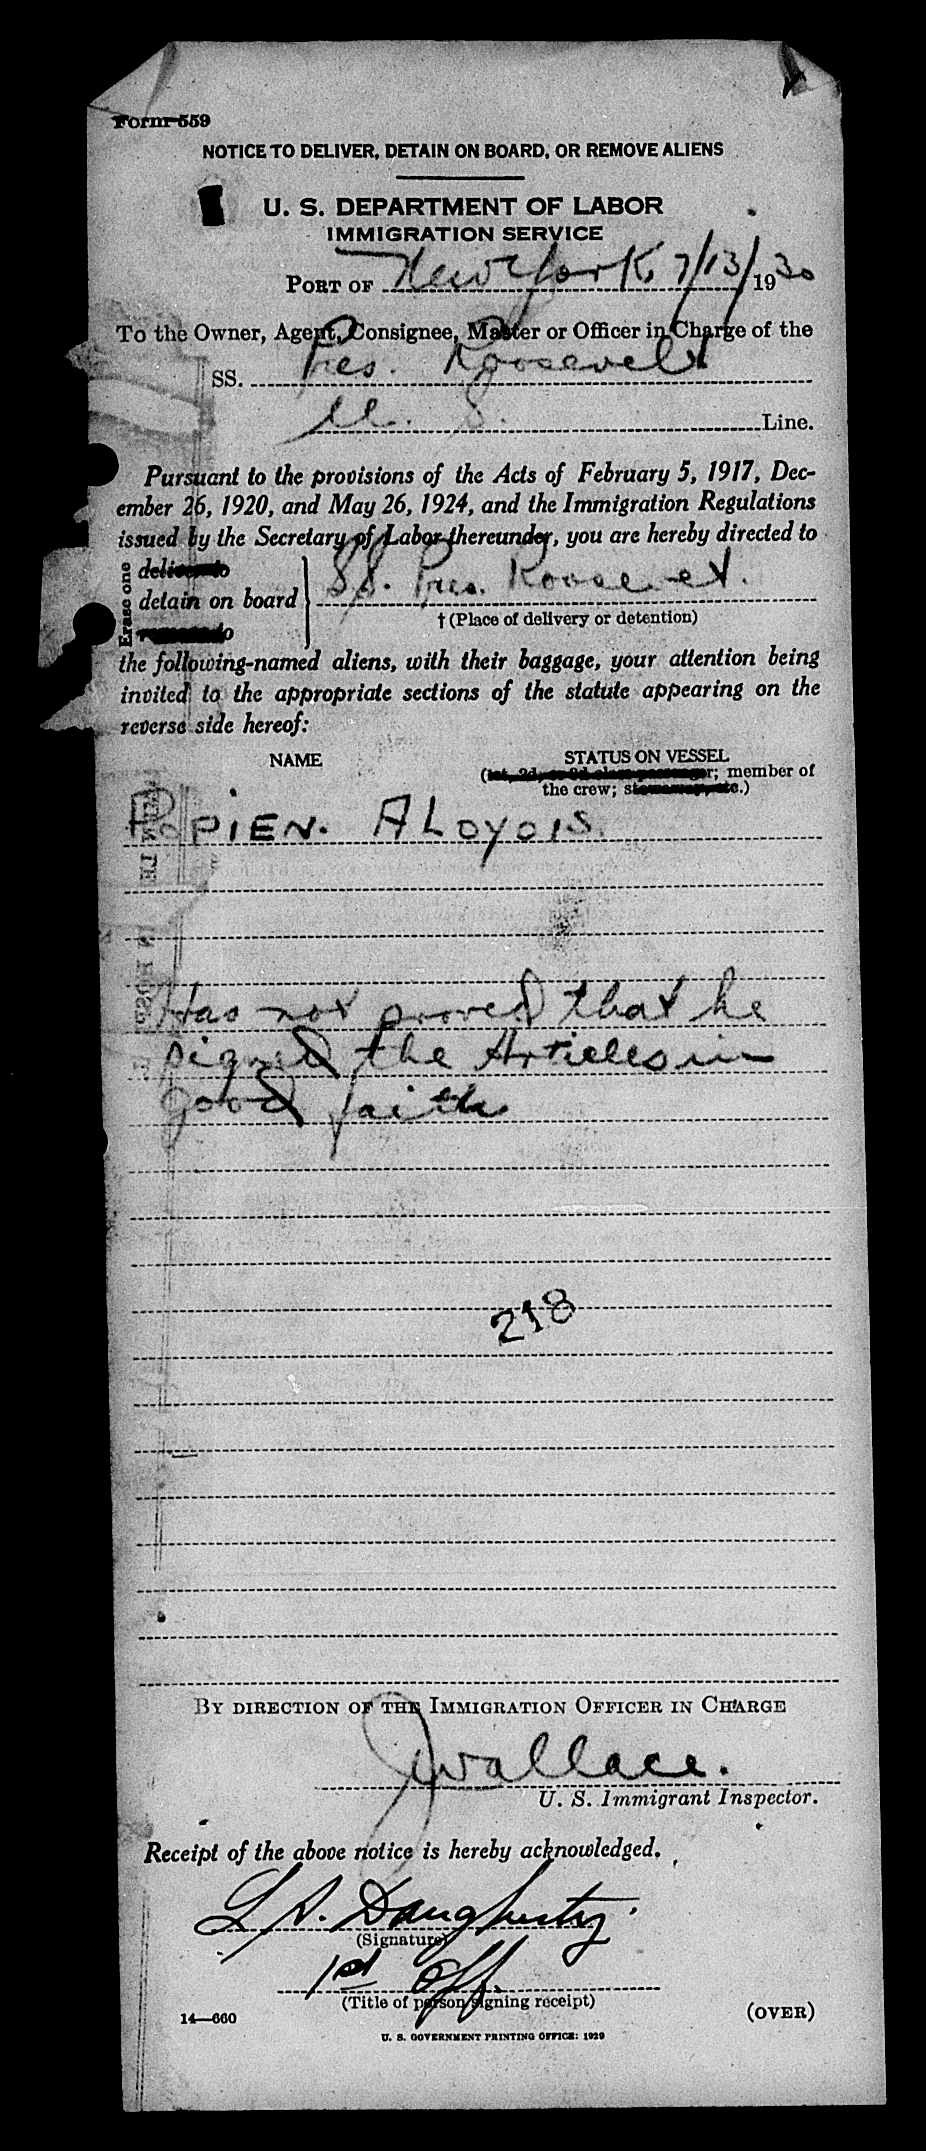 Form 559
NOTICE TO DELIVER, DETAIN ON BOARD, OR REMOVE ALIENS
U. S. DEPARTMENT OF LABOR
IMMIGRATION SERVICE
PORT OF New York 7/13/1930
To the Owner, Agent, Consignee, Master or Officer in Charge of the
SS. Pres. Roosevelt
U. S. Line.
Pursuant to the provisions of the Acts of February 5, 1917, Dec-
ember 26, 1920, and May 26, 1924, and the Immigration Regulations
issued by the Secretary of Labor thereunder, you are hereby directed to
Erase one
deliver to
detain on board SS. Pres. Roosevelt.
† (Place of delivery or detention)
the following-named aliens, with their baggage, your attention being
invited to the appropriate sections of the statute appearing on the
reverse side hereof:
NAME STATUS ON VESSEL
member of
the crew;
POPIEN. ALOYOIS.
Has not proved that he
signed the Articles in
good faith
218
BY DIRECTION OF THE IMMIGRATION OFFICER IN CHARGE
J Wallace.
U. S. Immigrant Inspector.
Receipt of the above notice is hereby acknowledged.
Daugherty.
(Signature)
1st Off.
(Title of person signing receipt)
14—660 (OVER)
U. S. GOVERNMENT PRINTING OFFICE: 1929